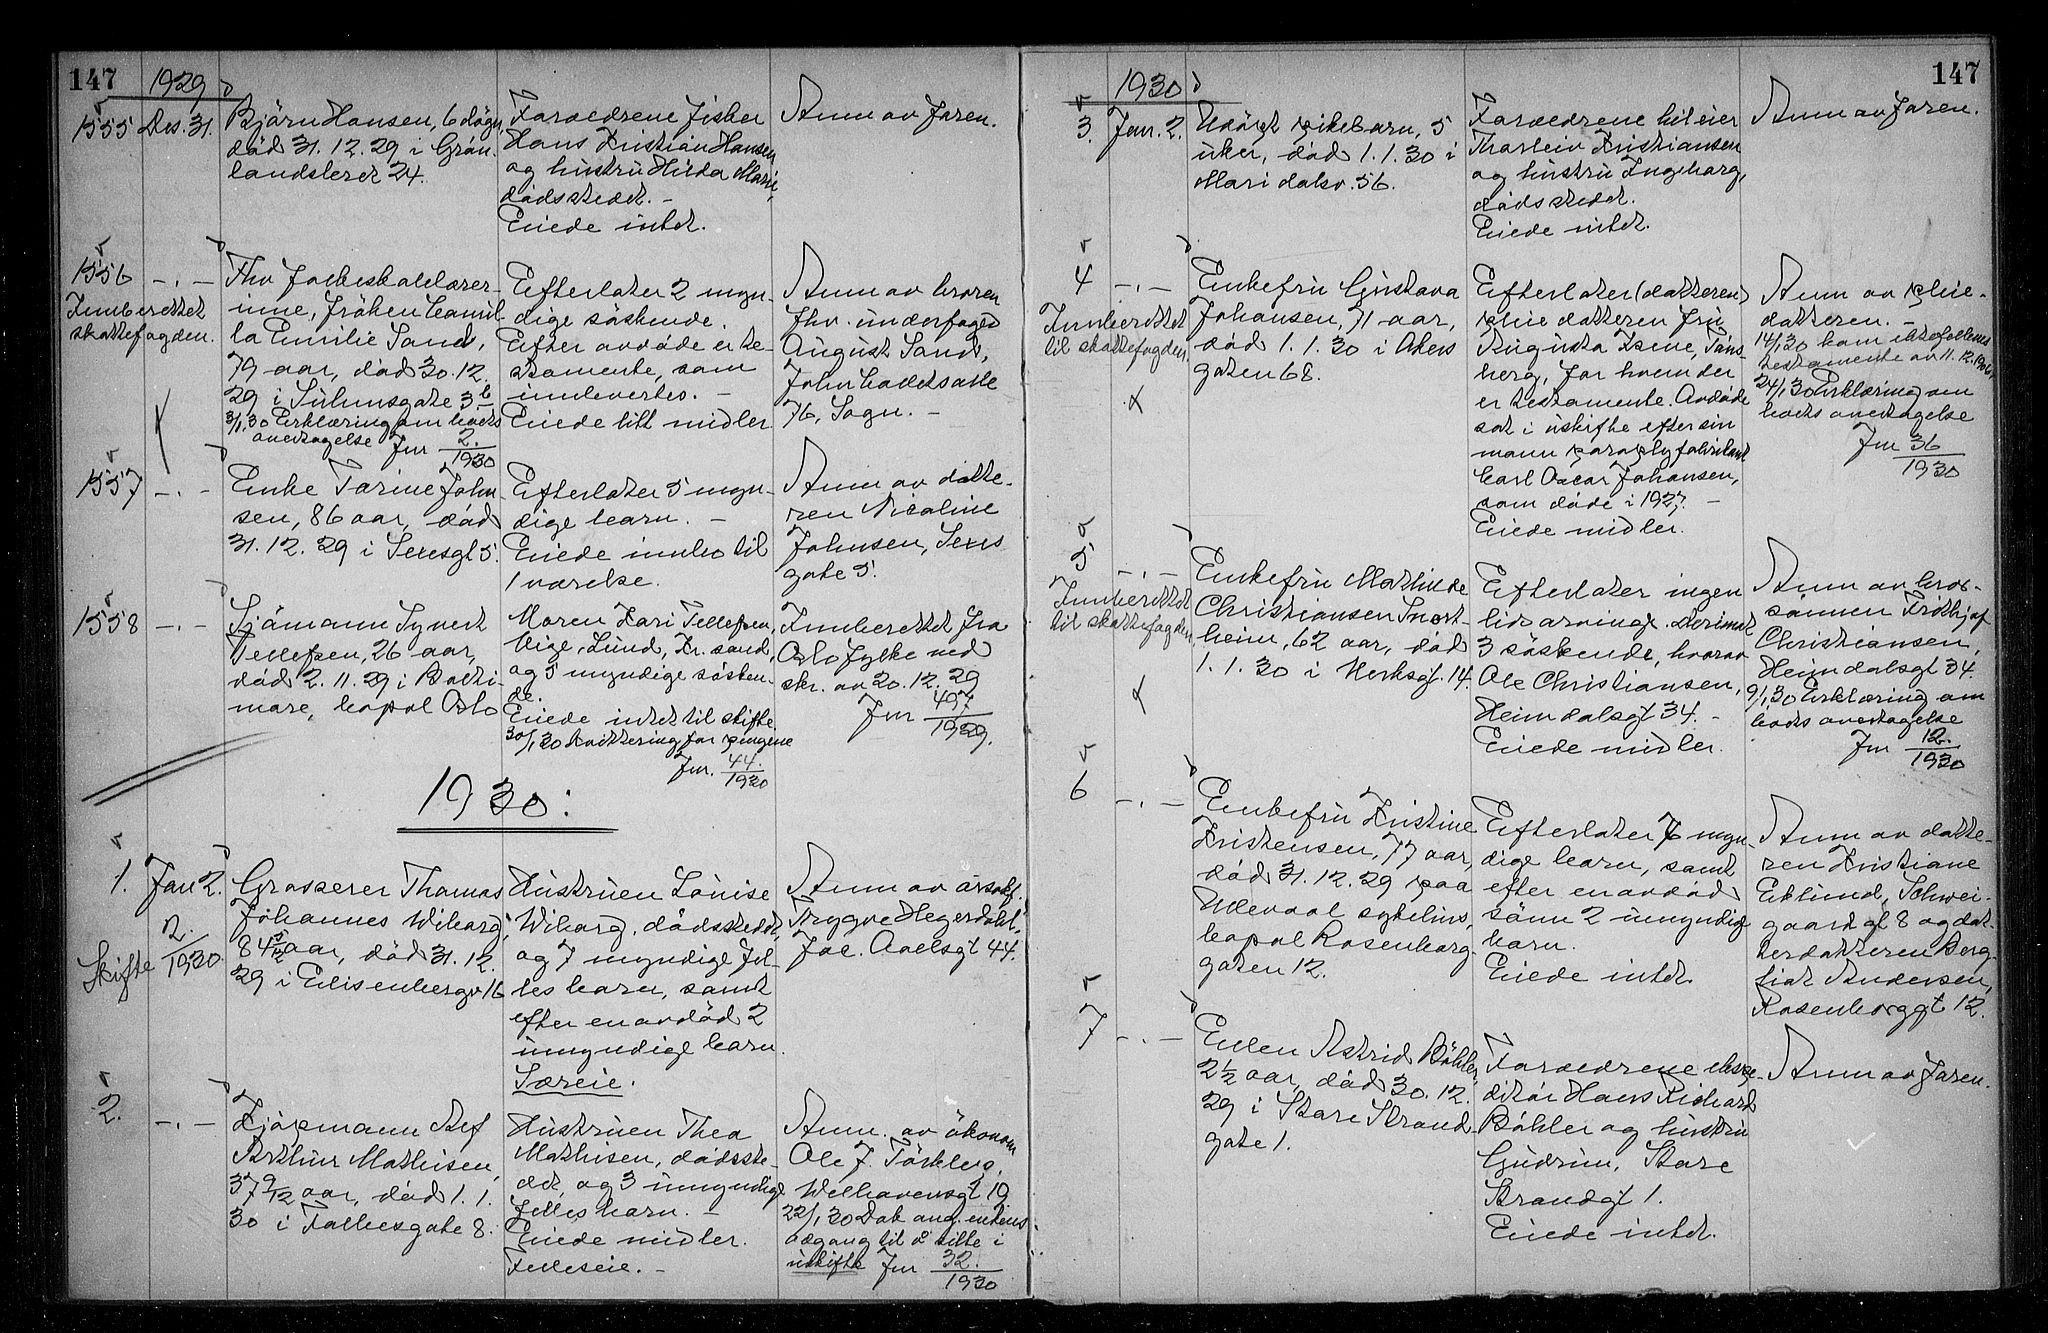 147
1929
1555 Des. 31.
Björn Hansen, 6 døgn,
død 31.12.29 i Grøn-
landsleret 24.
Foreldrene fisker
Hans Kristian Hansen
og hustru Hilda Marie,
dødsstedet. -
Eiede intet.
Anm av faren.
1556 -.-
Innberettet
skattefogden.
Fhv folkeskolelærer-
inne, frøken Camil-
la Emilie Sand,
79 aar, død 30.12.
29 i Schunsgate 3b
3/1.30 Erklæring om boets
overtagelse Jnr 2.
1930
Efterlater 2 myn-
dige søskende.
Efter avdøde er te-
stamente, som
innlevertes. -
Eiede litt midler
Anm av broren
fhv. underfoged
August Sand,
John Colletsalle
76, Sogn. -
1557 -.-
Enke Torine John-
sen, 86 aar, død
31.12.29 i Sexesgt 5.
Efterlater 5 myn-
dige barn. -
Eiede innbo til
1 værelse.
Anm av datte-
ren Nicoline
Johnsen, Sexes
gate 5.
1558 -.-
Sjømann Synert
Tellefsen, 26 aar,
død 2.11.29 i Balti-
more, bopel Oslo
Moren Kari Tellefsen,
Vige, Lund, Kr.sand,
og 5 myndige søsken-
de.
Eiede intet til skifte
30/1.30 Kvittering for pengene
Jnr. 44.
1930
Innberettet fra
Oslo fylke ved
skr. av 20.12.29
Jnr 497
1929.
1930:
1. Jan 2.
Skifte 2.
1930.
Grosserer Thomas
Johannes Wiborg,
84 5/12 aar, død 31.12.
29 i Eilisenbergv 16
Hustruen Louise
Wiborg, dødsstedet,
og 7 myndige fel-
les barn, samt
efter en avdød 2
umyndige barn.
Særeie.
Anm av o.r.sakf.
Trygve Hegerdahl,
Joc. Aallsgt 44.
2. -.-
Kjøpmann Alf
Arthur Mathisen,
37 9/12 aar, død 1.1.
30 i Falbesgate 8.
Hustruen Thea
Mathisen, dødsste-
det, og 3 umyndige
felles barn. -
Eiede midler.
Felleseie. -
Anm. av økonom
Ole J. Torkleig,
Welhavensgt 19
22/1.30 Dok ang. enkens
adgang til å sitte i
uskifte Jnr 32.
1930
147
1930
3. Jan. 2.
Udøpt pikebarn, 5
uker, død 1.1.30 i
Maridalsv. 56.
Foreldrene bileier
Thorleiv Kristiansen
og hustru Ingeborg,
dødsstedet.
Eiede intet.
Anm av faren.
4 -.-
Innberettet
til skattefogden
Enkefru Gustava
Johansen, 71 aar,
død 1.1.30 i Akers
gaten 68.
Efterlater (datteren)
pleiedatteren fru
Augusta Irene, Tøns-
berg, for hvem der
er testamente. Avdøde
sat i uskifte efter sin
mann paraplyfabrikant
Carl Oscar Johansen,
som døde i 1927. -
Eiede midler.
Anm av pleie-
datteren. -
14/1.30 kom
testamente av 11.12.
24/1.30 Erklæring om
boets overtagelse
Jnr 36
1930
5 -.-
Innberettet
til skattefogden
Enkefru Mathilde
Christiansen Snort-
heim, 62 aar, død
1.1.30 i Verksgt. 14.
Efterlater ingen
livsarvinge. Derimot
3 søskende, hvorav
Ole Christiansen,
Heimdalsgt 34. -
Eiede midler.
Anm av bror-
sønnen Fridthjof
Christiansen,
Heimdalsgt 34.
9/1.30 Erklæring om
boets overtagelse
Jnr 12.
1930
6 -.-
Enkefru Kristine
Kristensen, 77 aar,
død 31.12.29 paa
Ullevaal sykehus,
bopel Rosenborg-
gaten 12.
Efterlater 6 myn-
dige barn, samt
efter en avdød
sønn 2 umyndige
barn.
Eiede intet.
Anm av datte-
ren Kristiane
Eklund, Schwei-
gaardgt 8 og dat-
terdatteren Borg-
hild Andersen,
Rosenborggt 12.
7 -.-
Ellen Astrid Bøhler,
2 1/2 aar, død 30.12.
29 i Store Strand-
gate 1.
Foreldrene ekspe-
ditør Hans Richard
Bøhler og hustru
Gudrun, Store
Strandgt 1.
Eiede intet.
Anm av faren.